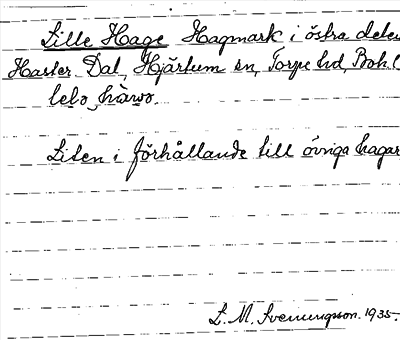 Lille Hage Hagmark i östra delen
Hjärtum sn, Torpe hd, Boh. l
Liten i förhållande till övriga hagar
S. M. Svenungsson. 1935.